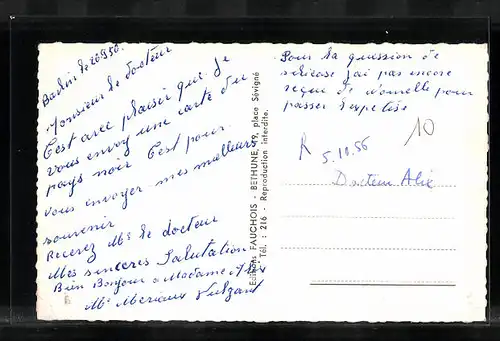 Barlin le 20.9.56.
Monsieur le docteur
C'est avec plaisir que je
vous envoy une carte du
pays noir C'est pour
vous envoyer mes meilleurs
souvenir
Recevez Mr le docteur
Mes sinceres Salutation
Bien Bonjour a Madame Alix
Mr Meriaux Vulgant
Editions FAUCHOIS - BETHUNE, 79, place Sévigné
Tél. : 216 - Reproduction interdite.
Pour la quession de
silicose j'ai pas encore
reçue de nouvelle pour
passer l'expetise
10
R 5.10.56
Docteur Alix